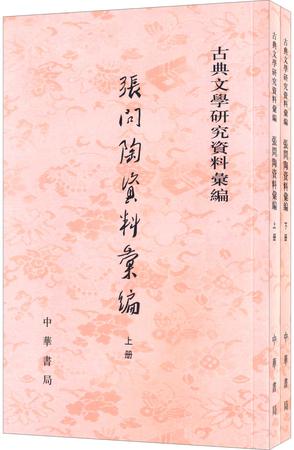 古典文學研究資料彙編
張問陶資料彙編
上册
中華書局
古典文學研究資料彙編
張問陶資料彙編
上册
中華書局
古典文學研究資料彙編
張問陶資料彙編
下册
中華書局